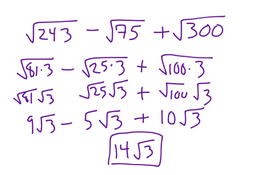 √243 − √75 + √300
√81·3 − √25·3 + √100·3
√81√3 √25√3 + √100 √3
9√3 − 5√3 + 10√3
14√3